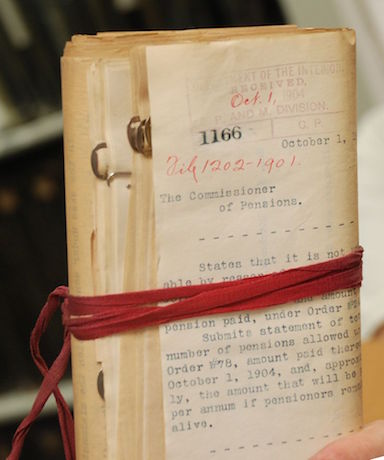 DEPARTMENT OF THE INTERIOR
RECEIVED,
Oct. 1, 1904
P. AND M. DIVISION.
1166
G. P.
October 1,
File 1202-1901.
The Commissioner
of Pensions.
States that it is not
able by reason of
and amoun
pension paid, under Order #
Submits statement of
number of pensions allowed
Order #78, amount paid
October 1, 1904, and, appro
ly, the amount that will be
per annum if pensioners
alive.